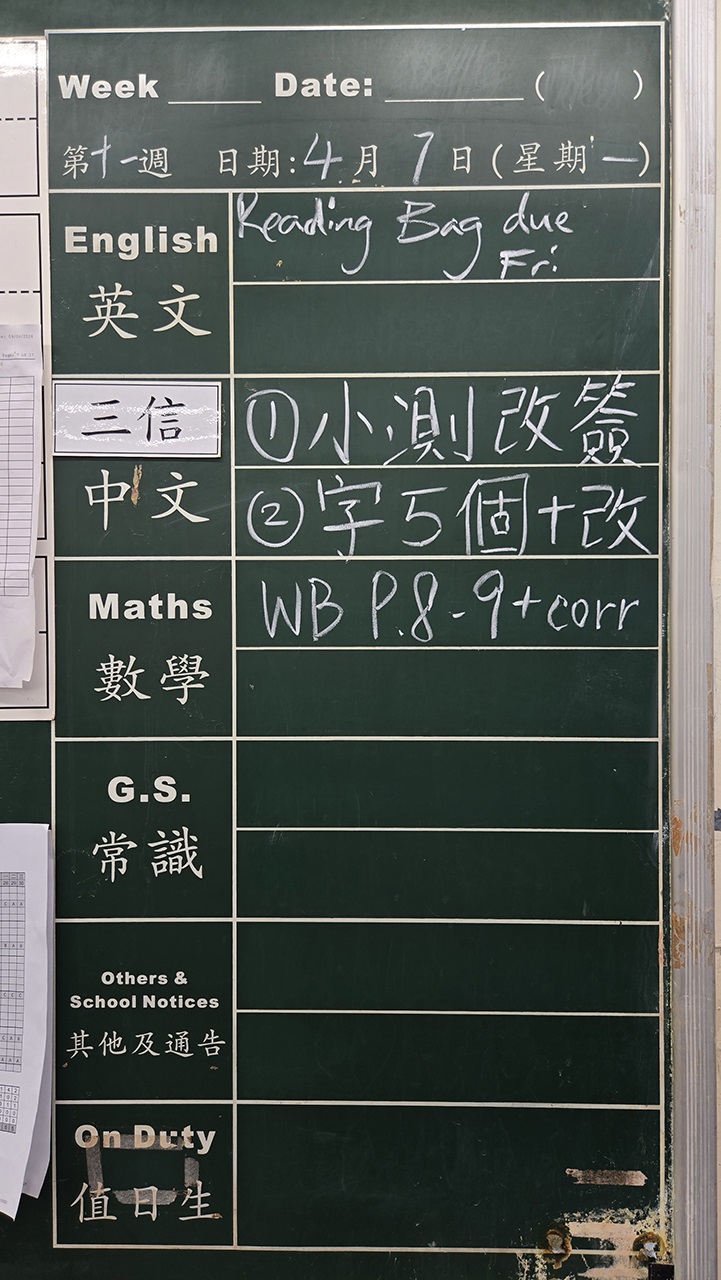 Week ____ Date: ______ ( )
第十一週 日期:4月7日(星期一)
English
英文
Reading Bag due
Fri.
三信
中文
①小測改簽
②字5個+改
Maths
數學
WB P.8-9+corr
G.S.
常識
Others &
School Notices
其他及通告
On Duty
值日生